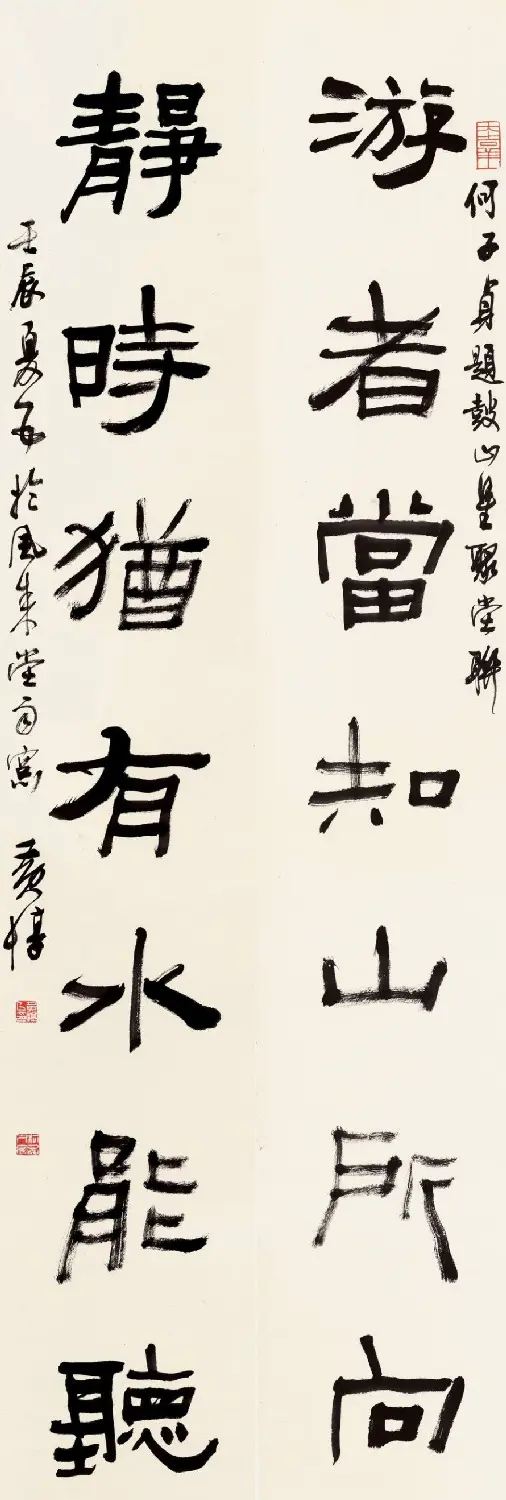 何子貞題鼓山星聚堂聯
游者當知山所向
靜時猶有水能聽
壬辰夏於風來堂窗 黃惇